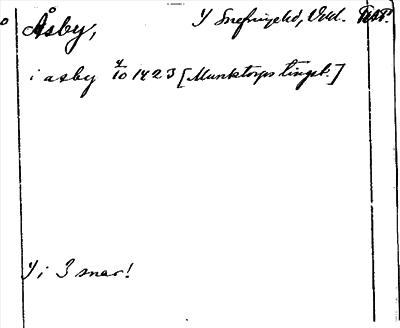 Åsby,
Y Snefringehd, Vstl.
i asby 4/10 1423 [Munktorps tingsl.]
Y i 3 snar!